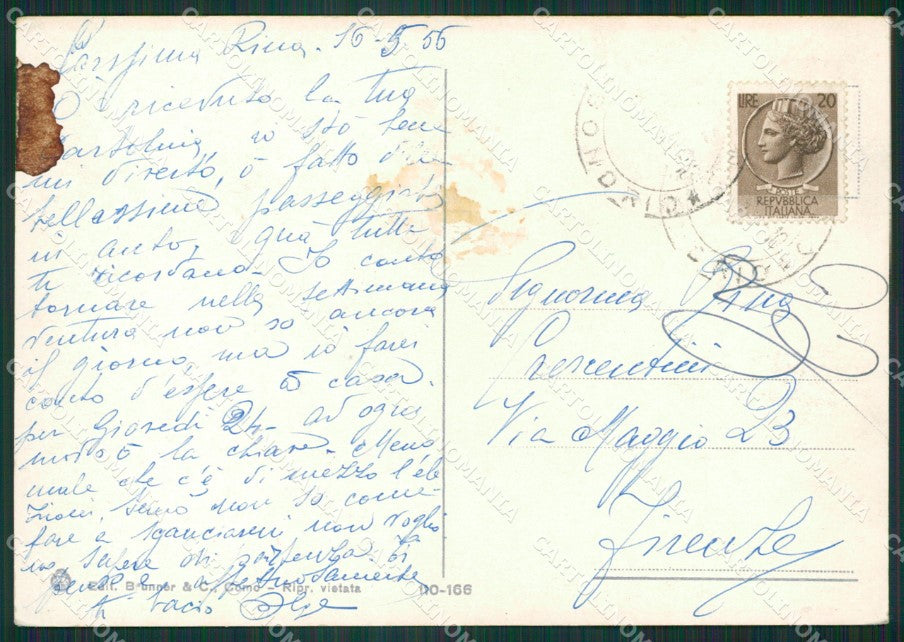 Carissima Rina. 16-5-56
Ò ricevuto la tua
cartolina, io stò bene
mi diverto, ò fatto di
bellissime passeggiate
in auto, quà tutti
ti ricordano. Io conto
tornare nella settimana
ventura non so ancora
il giorno, ma io farei
conto d'essere à casa
per Giovedì 24. ad ogni
modo ò la chiave. Meno
male che c'è di mezzo l'ele
zioni, senò non so come
fare a sganciarmi non voglio
no sapere di partenza.
affettuosamente
ti bacio
Edit. Brunner & C., Como - Ripr. vietata
110-166
LIRE 20
REPVBBLICA
ITALIANA
Signorina Rina
Crescentini
Via Maggio 23
Firenze
CARTOLINOMANIA